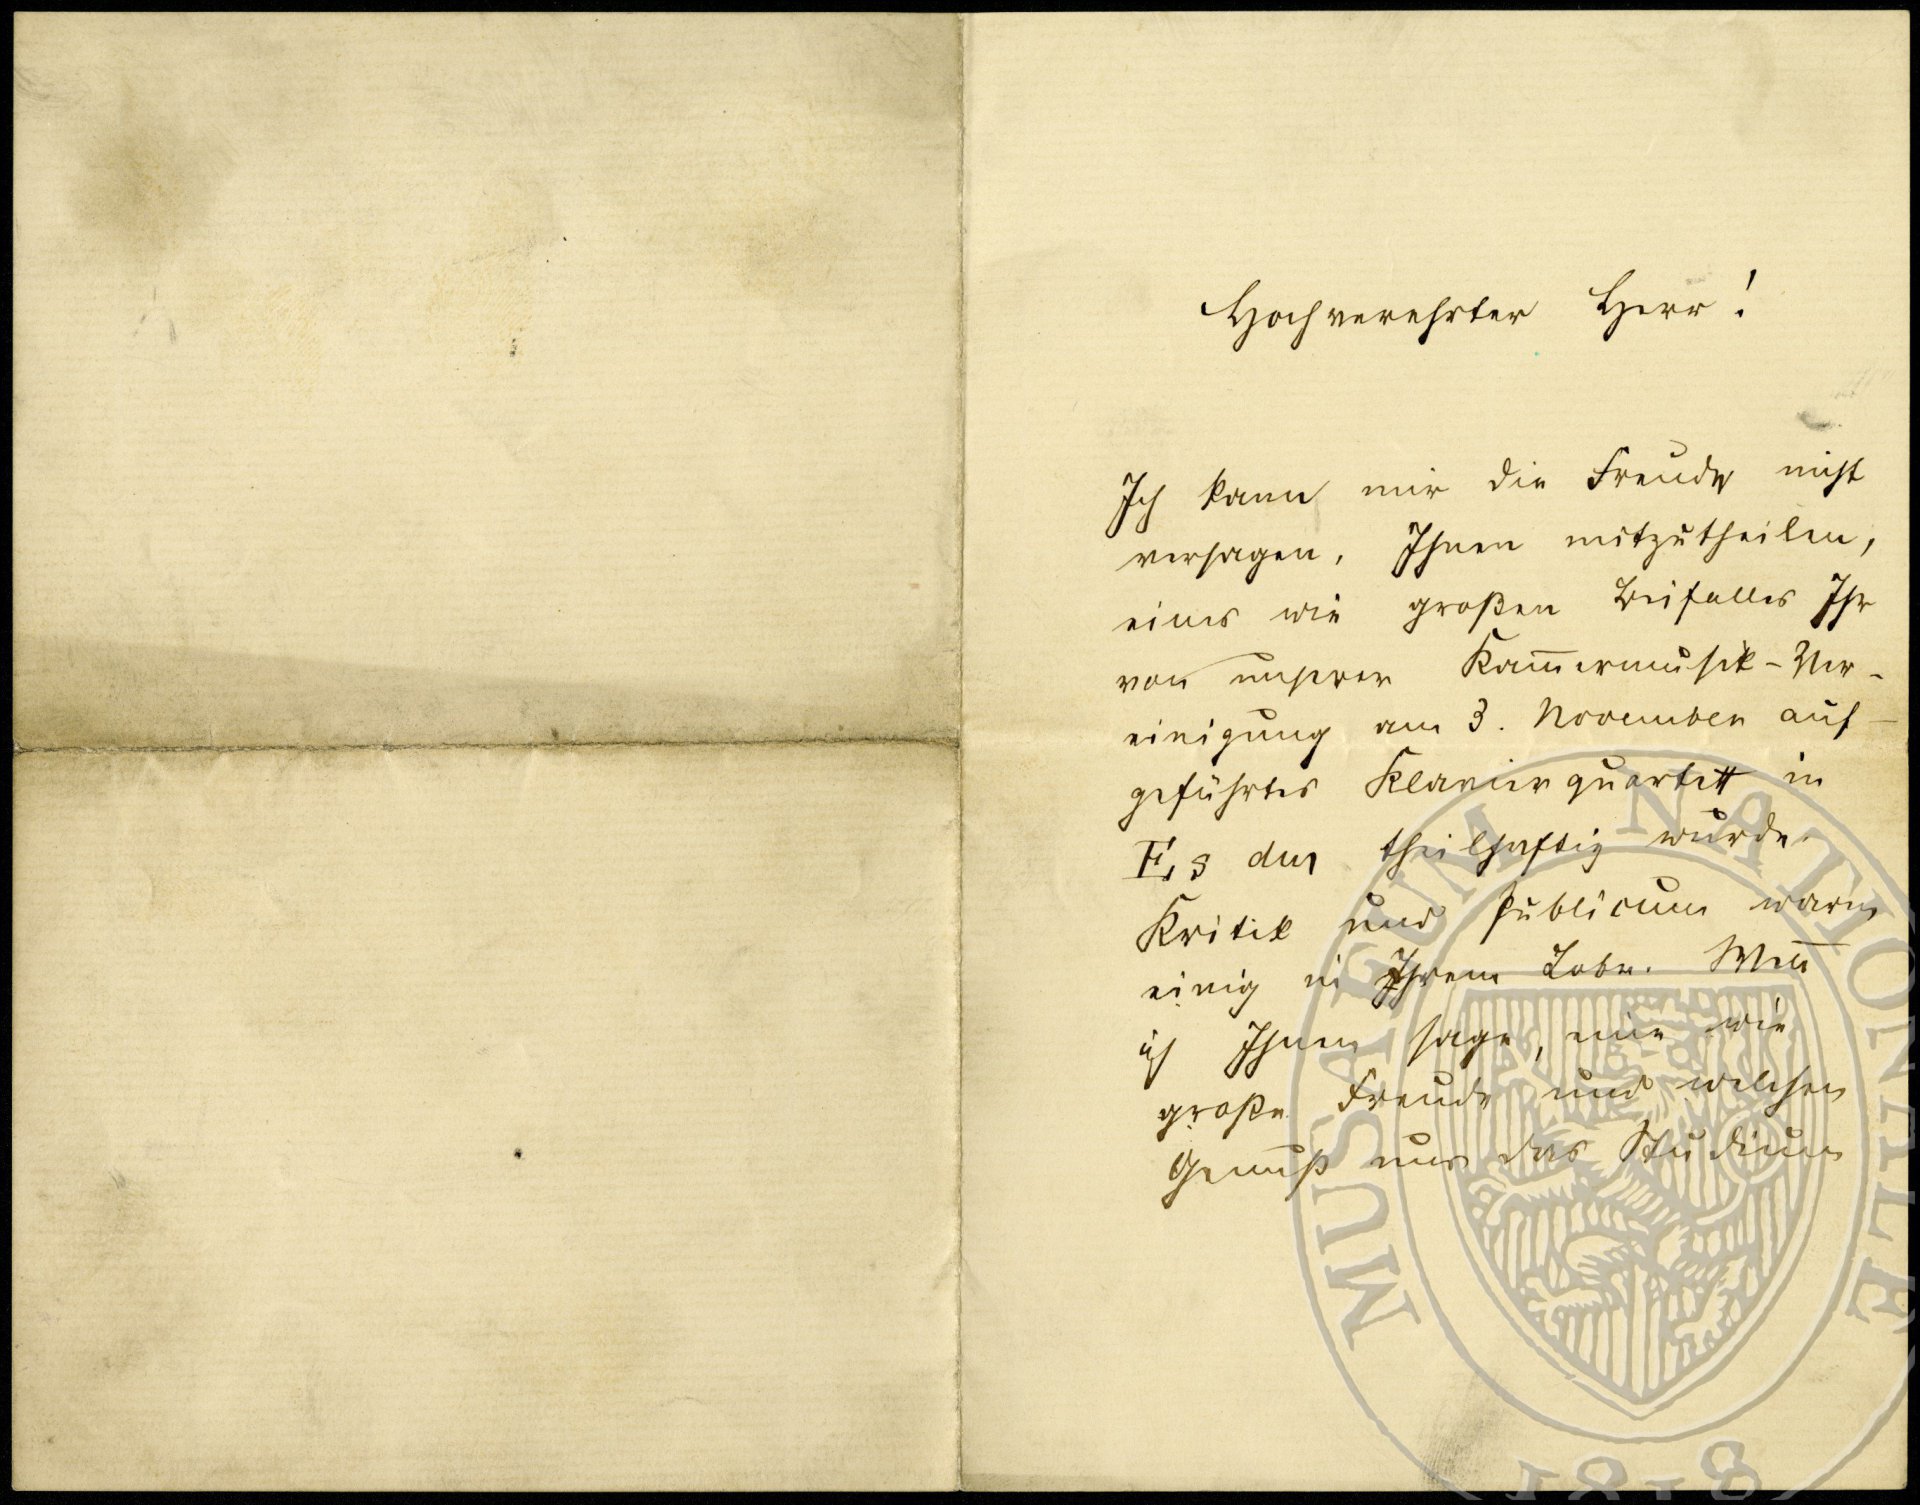 Hochverehrter Herr!
Ich kann mir die Freude nicht
versagen, Ihnen mitzutheilen,
eines wie großen Beifalles Ihr
von unserer Kam̅ermusik-Ver-
einigung am 3. November auf-
geführtes Klavierquartett in
Es dur theilhaftig wurde.
Kritik und Publicum waren
einig in Ihrem Lobe. Wen̅
ich Ihnen sage, eine wie
große Freude und welchen
Genuß uns das Studium
MUSAEUM NATIONALE
1818